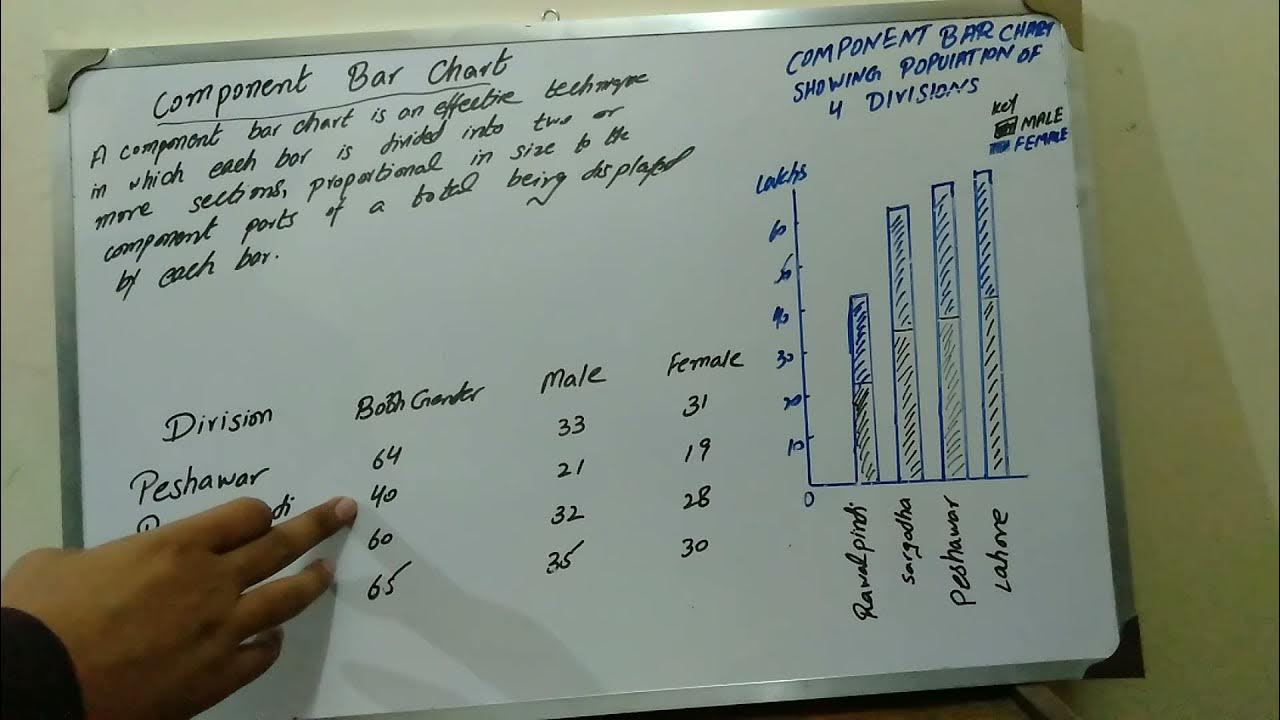 Component Bar Chart
A component bar chart is an effective technique
in which each bar is divided into two or
more sections, proportional in size to the
component parts of a total being displayed
by each bar.
Division Both Gender Male Female
Peshawar 64 33 31
40 21 19
60 32 28
65 35 30
COMPONENT BAR CHART
SHOWING POPULATION OF
4 DIVISIONS
Key
MALE
FEMALE
Lakhs
60
50
40
30
20
10
0
Rawalpindi
Sargodha
Peshawar
Lahore